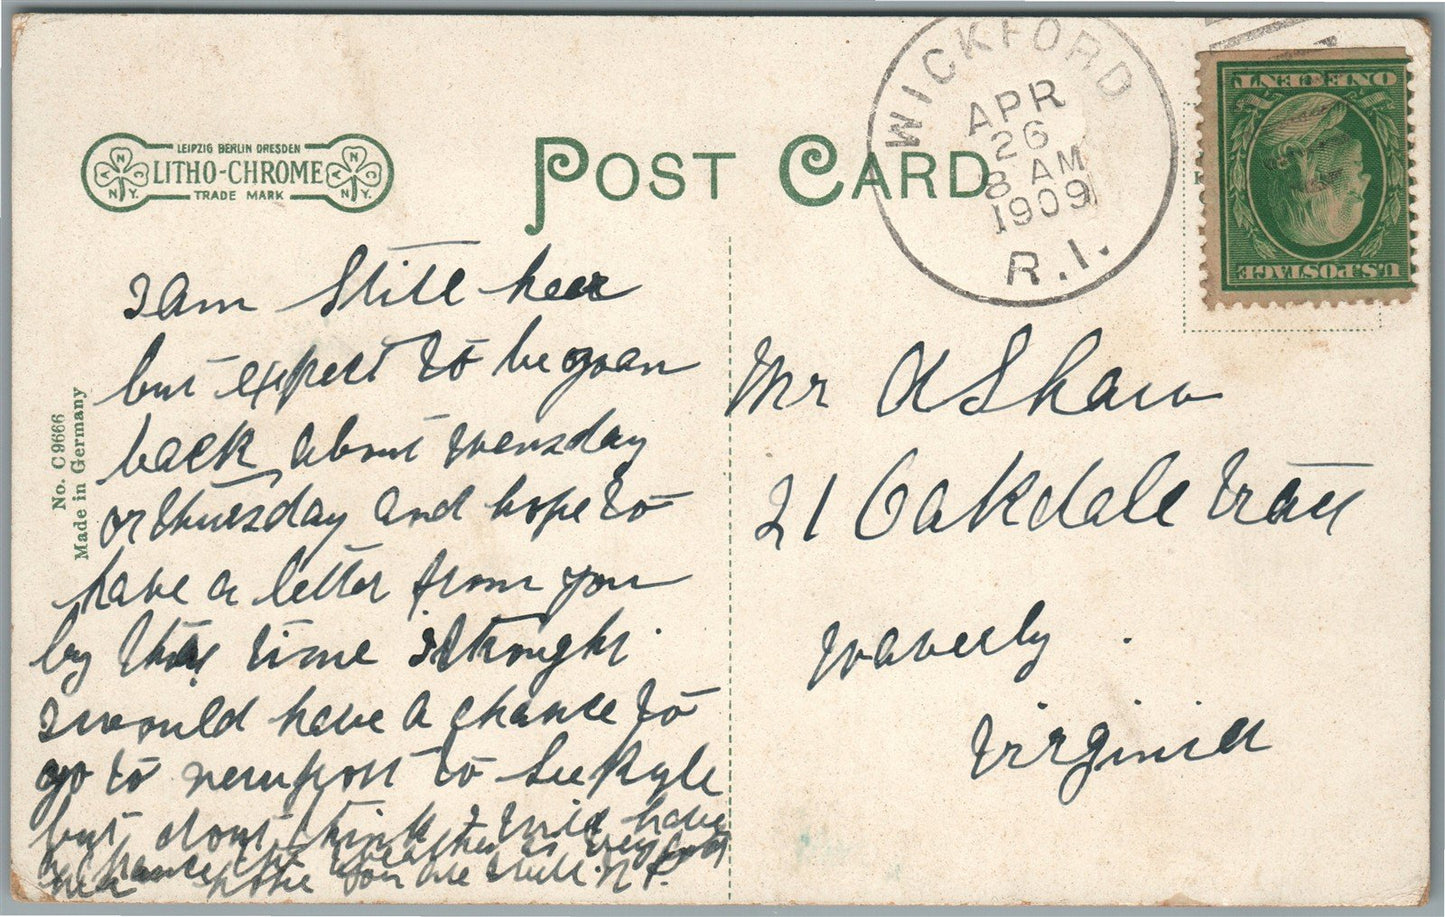 LEIPZIG BERLIN DRESDEN
LITHO-CHROME
TRADE MARK
A N C N.Y.
A N C N.Y.
POST CARD
WICKFORD
APR
26
8 AM
1909
R.I.
ONE CENT
U.S. POSTAGE
No. C 9666
Made in Germany
I am Still heer
but expect to be goan
back about wensday
or thuesday and hope to
have a letter from you
by this time I thought
I would have a chance to
go to newport to See Kyle
but dont think I will have
a chance the weather is very
here hope you are well. N P.
Mr A Shaw
21 Oakdale
Waverly.
Virginia